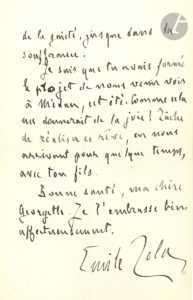 de la gaieté, jusque dans la
souffrance.
Je sais que tu avais formé
le projet de nous venir voir
à Médan, cet été. Comme cela
me donnerait de la joie! Tâche
de réaliser ce rêve, en nous
arrivant pour quelque temps,
avec ton fils.
Bonne santé, ma chère
Georgette. Je t'embrasse bien
affectueusement.
Emile Zola